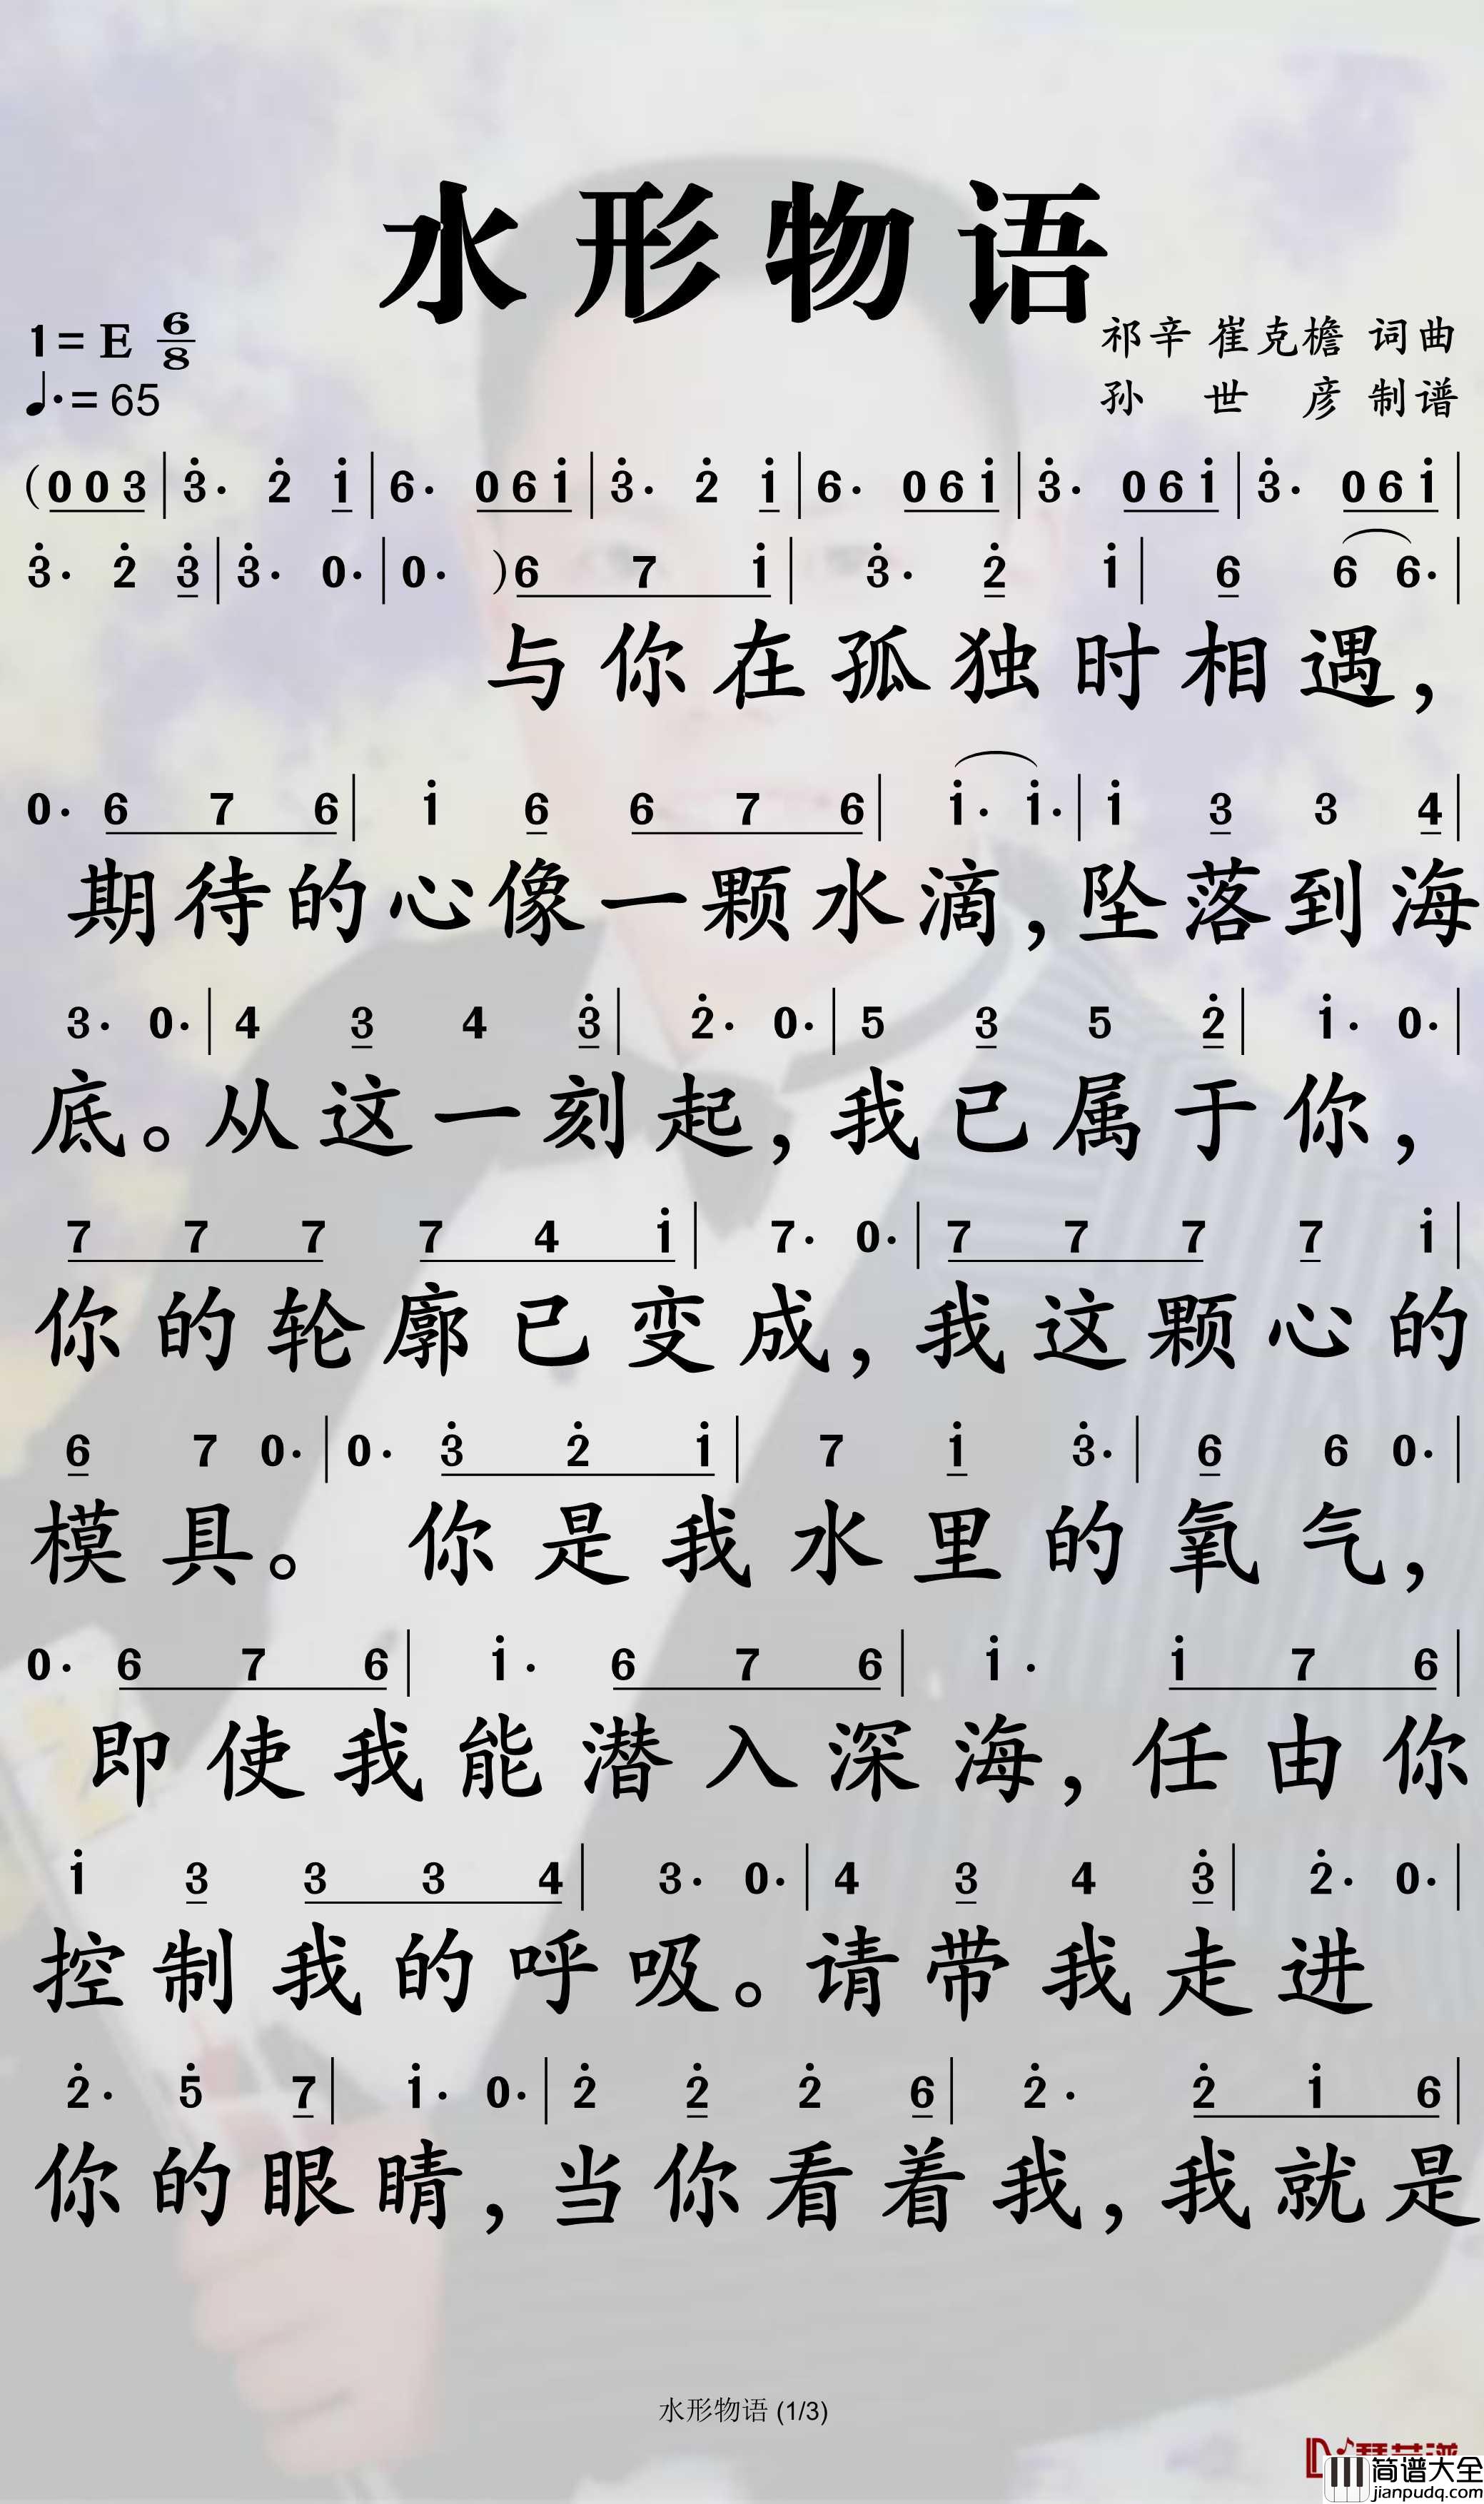 水形物语
1=E 6/8
祁辛 崔克檐 词曲
♩.=65
孙世彦 制谱
(0 0 3 | 3̇· 2̇ 1̇ | 6· 0 6 1̇ | 3̇· 2̇ 1̇ | 6· 0 6 1̇ | 3̇· 0 6 1̇ | 3̇· 0 6 1̇ |
3̇· 2̇ 3̇ | 3̇· 0· | 0· ) 6 7 1̇ | 3̇· 2̇ 1̇ | 6 6 6· |
与你在孤独时相遇，
0· 6 7 6 | 1̇ 6 6 7 6 | 1̇· 1̇· | 1̇ 3 3 4 |
期待的心像一颗水滴，坠落到海
3· 0· | 4 3 4 3̇ | 2̇· 0· | 5 3 5 2̇ | 1̇· 0· |
底。从这一刻起，我已属于你，
7 7 7 7 4 1̇ | 7· 0· | 7 7 7 7 1̇ |
你的轮廓已变成，我这颗心的
6 7 0· | 0· 3̇ 2̇ 1̇ | 7 1̇ 3̇· | 6 6 0· |
模具。你是我水里的氧气，
0· 6 7 6 | 1̇· 6 7 6 | 1̇· 1̇ 7 6 |
即使我能潜入深海，任由你
1̇ 3 3 3 4 | 3· 0· | 4 3 4 3̇ | 2̇· 0· |
控制我的呼吸。请带我走进
2̇· 5̇ 7 | 1̇· 0· | 2̇ 2̇ 2̇ 6 | 2̇· 2̇ 1̇ 6 |
你的眼睛，当你看着我，我就是
水形物语 (1/3)
简谱大全
jianpudq.com